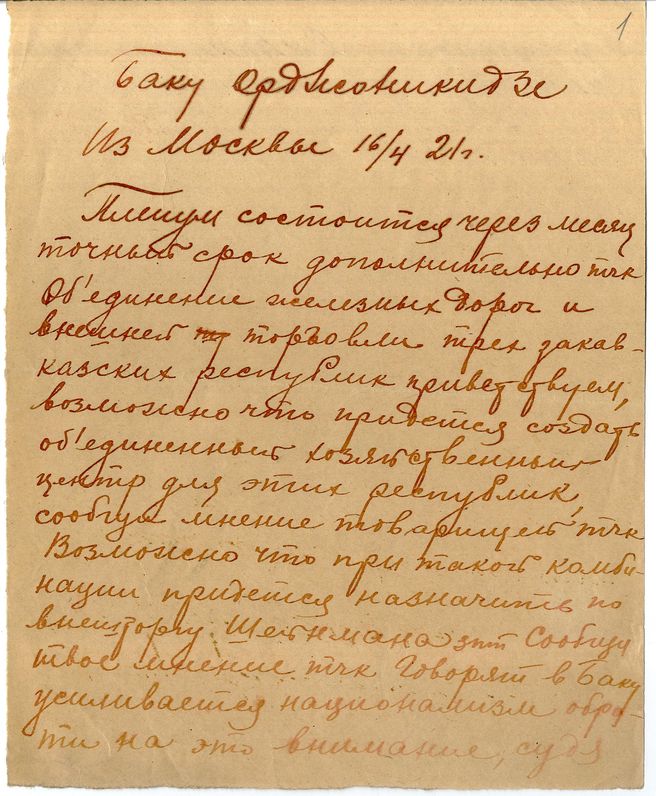 1
Баку Орджоникидзе
Из Москвы 16/4 21г.
Пленум состоится через месяц
точный срок дополнительно тчк
Об'единение железных дорог и
внешней торговли трех закав-
казских республик приветствуем,
возможно что придется создать
об'единенный хозяйственный
центр для этих республик,
сообщи мнение товарищей тчк
Возможно что при такой комби-
нации придется назначить по
внешторгу Шейнмана зпт Сообщи
твое мнение тчк Говорят в Баку
усиливается национализм обра-
ти на это внимание, судя